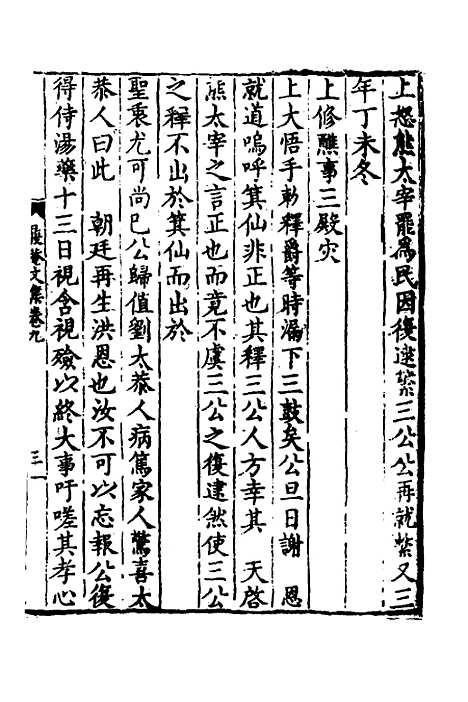 上怒熊太宰罷為民因復逮縶三公公再就縶又三
年丁未冬
上修醮事三殿灾
上大悟手勑釋爵等時漏下三鼓矣公旦日謝　恩
就道嗚呼箕仙非正也其釋三公人方幸其　天啓
熊太宰之言正也而竟不虞三公之復逮然使三公
之釋不出於箕仙而出於
聖衷尤可尚巳公歸值劉太恭人病篤家人驚喜太
恭人曰此　朝廷再生洪恩也汝不可以忘報公復
得侍湯藥十三日視含視殮以終大事吁嗟其孝心
文集卷九
三